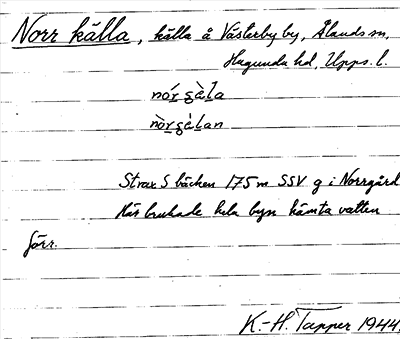 Norr källa, källa å Västerby by, Ålands sn,
Hagunda hd, Upps. l.
nórg̣ằḷa
nòrg̣ằḷan
Strax S bäcken 175 m SSV g i Norrgård
Här brukade hela byn hämta vatten
förr.
K.-H. Tapper 1944.